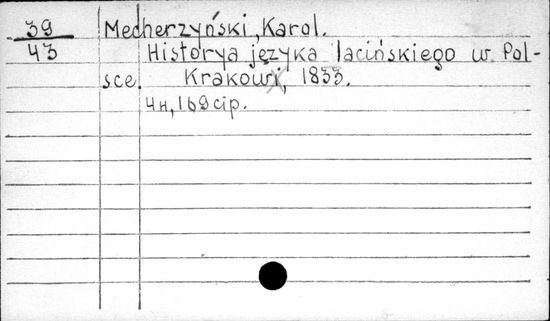 39 Mecherzyński, Karol.
43 Historya języka łacińskiego w Pol-
sce. Krakow, 1833.
4н, 169 cip.